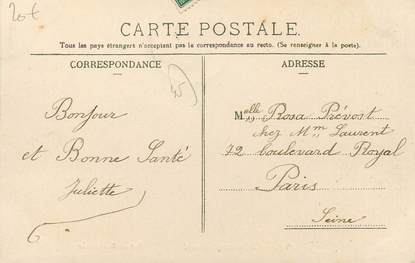 20€
CARTE POSTALE.
Tous les pays étrangers n'acceptent pas la correspondance au recto. (Se renseigner à la poste).
CORRESPONDANCE
ADRESSE
45
Bonjour
et Bonne Santé
Juliette
Melle Rosa Prévost
chez Mme Laurent
72 boulevard Royal
Paris
Seine